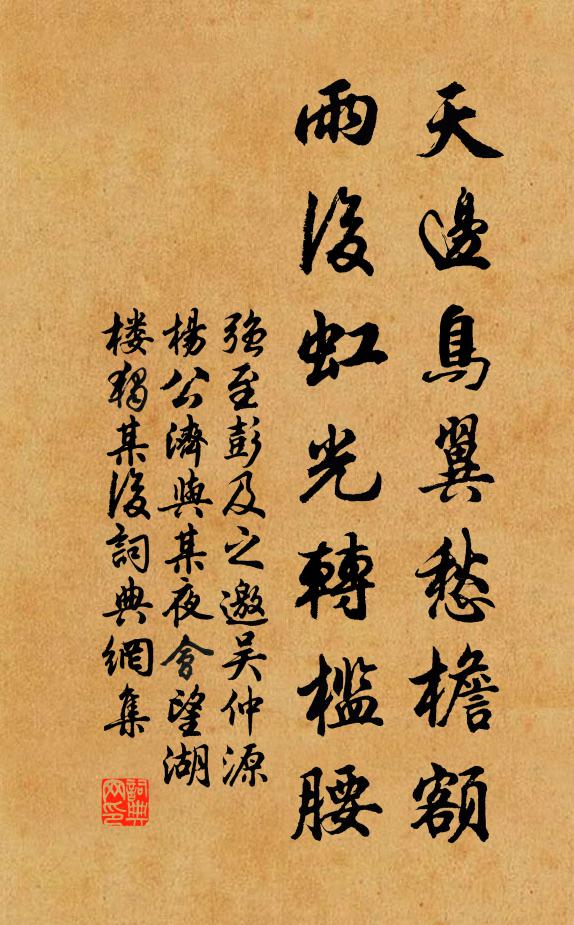 天邊鳥翼愁檐額
雨後虹光轉檻腰
強至彭及之邀吴仲源
楊公濟與某夜會望湖
楼獨某後詞典網集
詞典网印